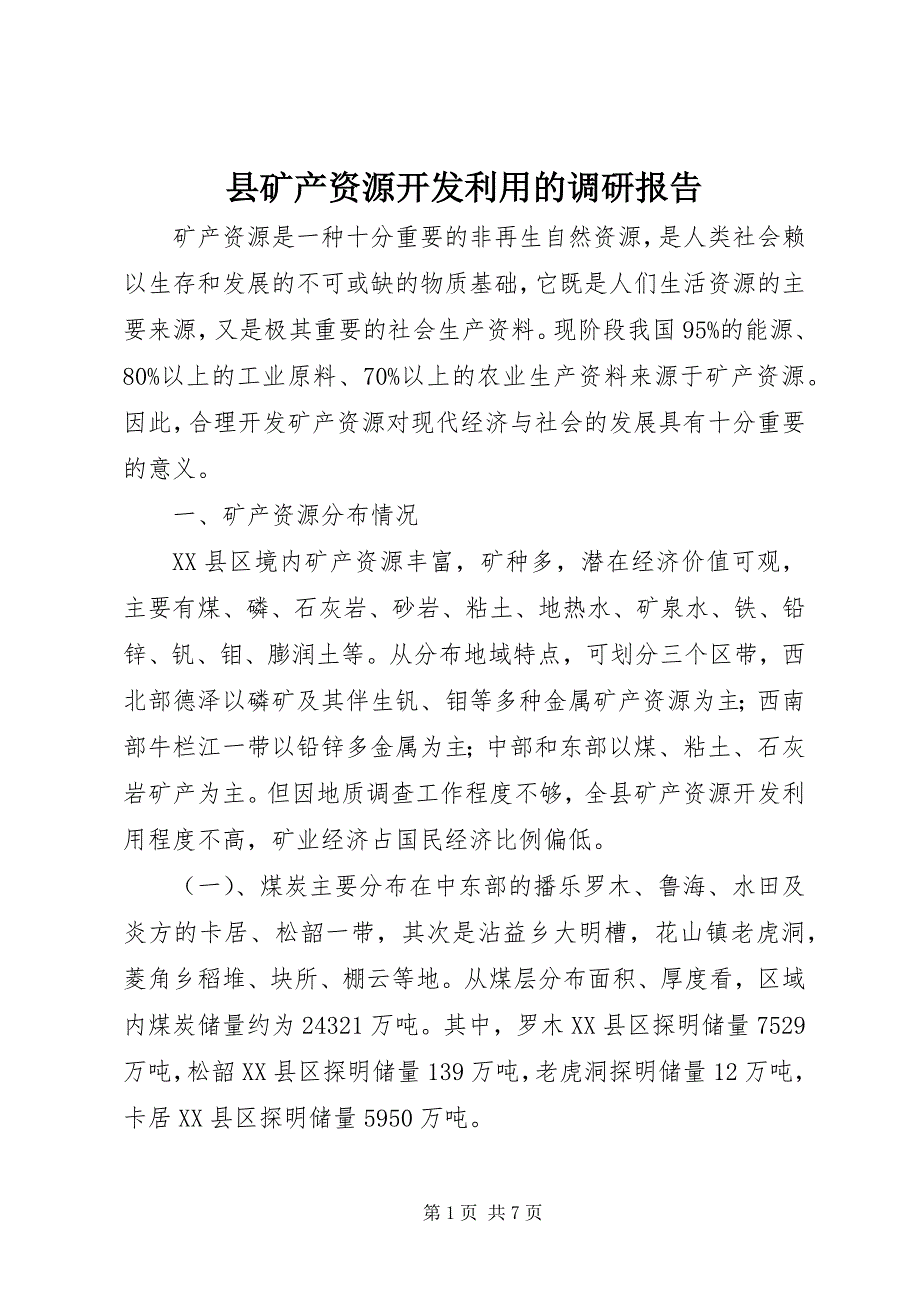 县矿产资源开发利用的调研报告
矿产资源是一种十分重要的非再生自然资源,是人类社会赖
以生存和发展的不可或缺的物质基础,它既是人们生活资源的主
要来源,又是极其重要的社会生产资料。现阶段我国 95%的能源、
80%以上的工业原料、70%以上的农业生产资料来源于矿产资源。
因此,合理开发矿产资源对现代经济与社会的发展具有十分重要
的意义。
一、矿产资源分布情况
XX 县区境内矿产资源丰富，矿种多，潜在经济价值可观，
主要有煤、磷、石灰岩、砂岩、粘土、地热水、矿泉水、铁、铅
锌、钒、钼、膨润土等。从分布地域特点，可划分三个区带，西
北部德泽以磷矿及其伴生钒、钼等多种金属矿产资源为主;西南
部牛栏江一带以铅锌多金属为主;中部和东部以煤、粘土、石灰
岩矿产为主。但因地质调查工作程度不够，全县矿产资源开发利
用程度不高，矿业经济占国民经济比例偏低。
（一）、煤炭主要分布在中东部的播乐罗木、鲁海、水田及
炎方的卡居、松韶一带，其次是沾益乡大明槽，花山镇老虎洞，
菱角乡稻堆、块所、棚云等地。从煤层分布面积、厚度看，区域
内煤炭储量约为 24321 万吨。其中，罗木 XX 县区探明储量 7529
万吨,松韶 XX 县区探明储量 139 万吨,老虎洞探明储量 12 万吨，
卡居 XX 县区探明储量 5950 万吨。
第 1 页 共 7 页